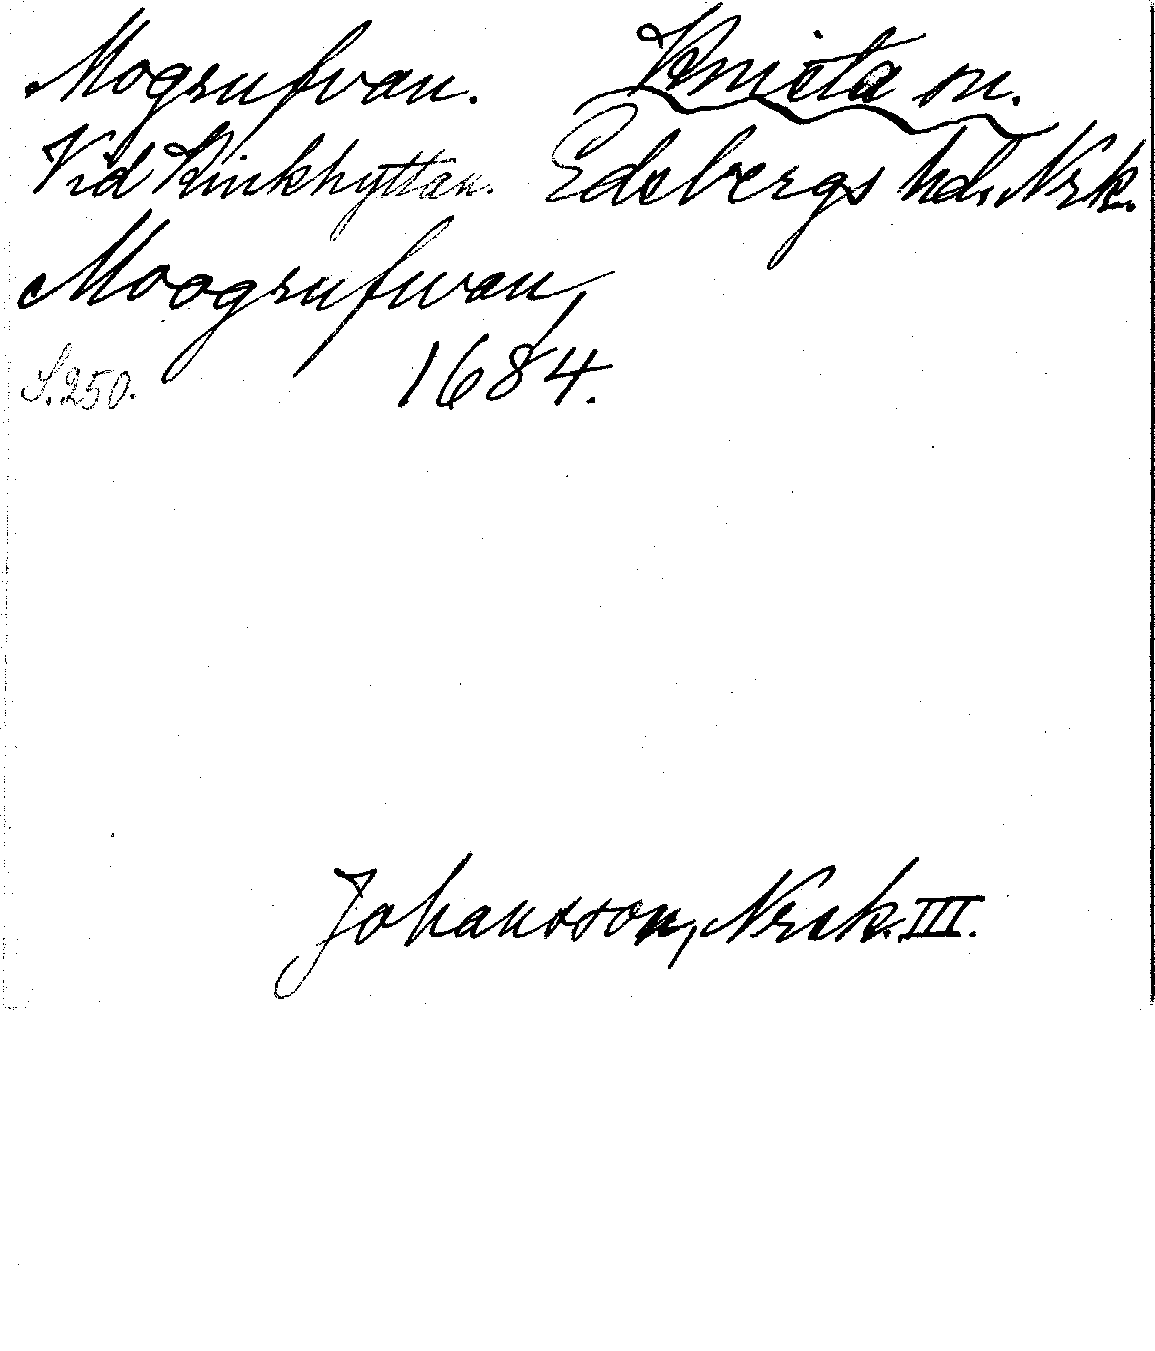 Mogrufvan. Knista sn.
Vid Kinkhyttan. Edsbergs hd. Nrk.
Moogrufwan,
S. 250. 1684.
Johansson, Nrck. III.